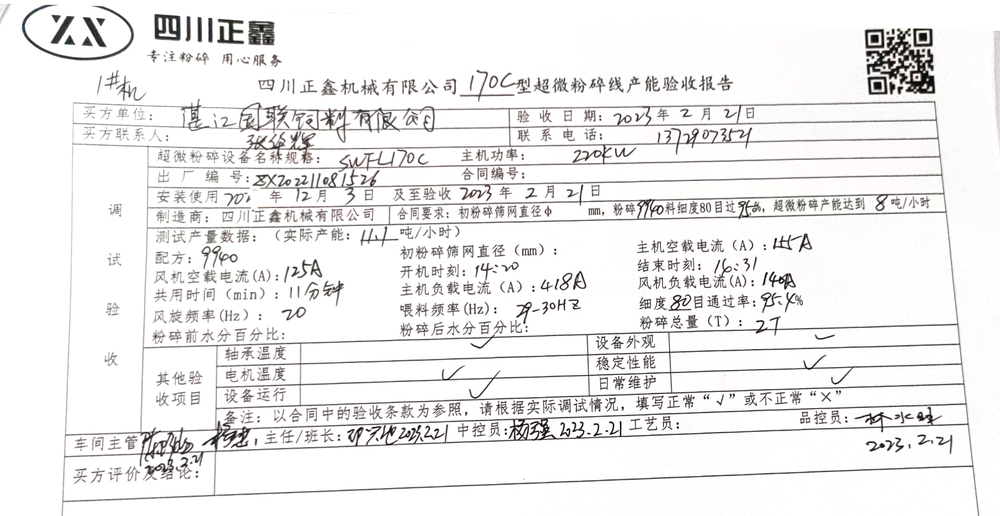 ZX 四川正鑫
专注粉碎 用心服务
1#机
四川正鑫机械有限公司170C型超微粉碎线产能验收报告
买方单位: 湛江国联饲料有限公司 验收日期: 2023年2月21日
买方联系人: 张华辉 联系电话: 13729073521
调试验收
超微粉碎设备名称规格: SWFL170C 主机功率: 220KW
出厂编号: ZX20221081526 合同编号:
安装使用 年12月3日 及至验收2023年2月21日
制造商: 四川正鑫机械有限公司 合同要求: 初粉碎筛网直径ф mm, 粉碎9940料细度80目过95%, 超微粉碎产能达到8吨/小时
测试产量数据: (实际产能: 11.1吨/小时)
配方: 9940 初粉碎筛网直径(mm): 主机空载电流(A): 155A
风机空载电流(A): 125A 开机时刻: 14:20 结束时刻: 14:31
共用时间(min): 11分钟 主机负载电流(A): 418A 风机负载电流(A): 140A
风旋频率(Hz): 20 喂料频率(Hz): 29-30HZ 细度80目通过率: 95.4%
粉碎前水分百分比: 粉碎后水分百分比: 粉碎总量(T): 2T
其他验收项目
轴承温度 ✓ 设备外观 ✓
电机温度 ✓ 稳定性能 ✓
设备运行 ✓ 日常维护 ✓
备注: 以合同中的验收条款为参照, 请根据实际调试情况, 填写正常“√”或不正常“×”
车间主管 2023.2.21 主任/班长: 2023.2.21 中控员: 杨强 2023.2.21 工艺员: 品控员: 2023.2.21
买方评价及结论: